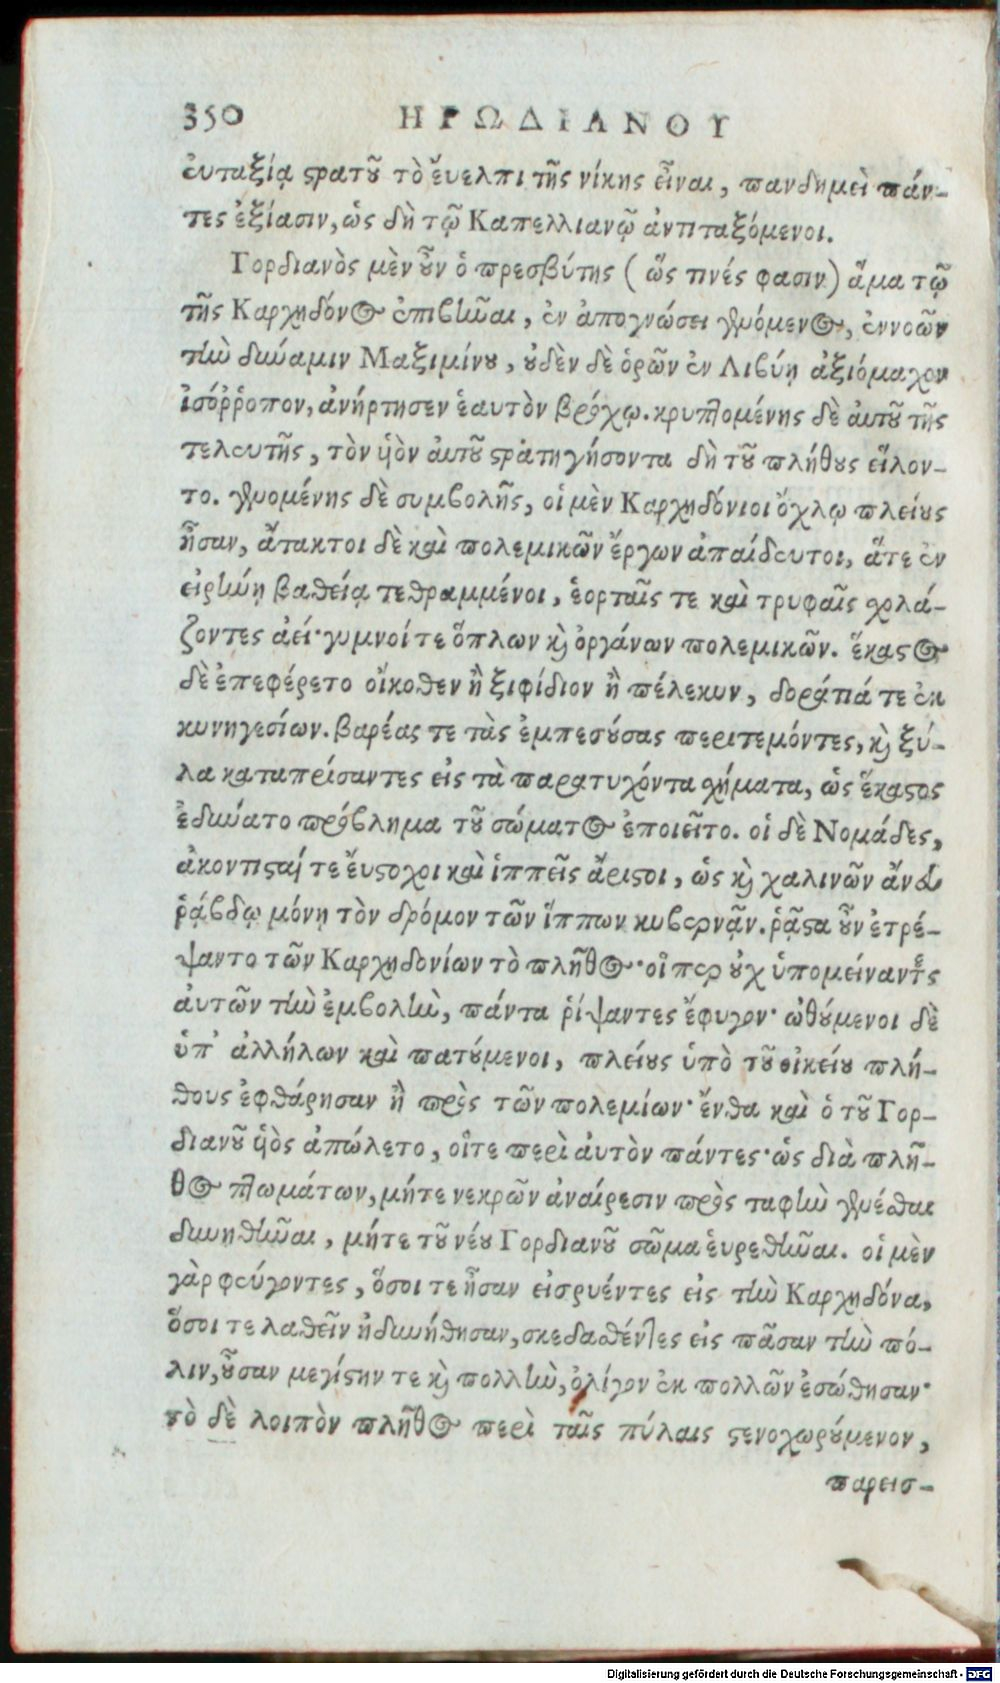 350 ΗΡΩΔΙΑΝΟΥ
ἐυταξίᾳ στρατοῦ τὸ ἔυελπι τῆς νίκης εἶναι, πανδημεὶ πάν-
τες ἐξίασιν, ὡς δὴ τῷ Καπελλιανῷ ἀντιταξόμενοι.
Γορδιανὸς μὲν οὖν ὁ πρεσβύτης (ὥς τινές φασιν) ἅμα τῷ
τῆς Καρχηδόνος ἐπιβῆναι, ἐν ἀπογνώσει γενόμενος, ἐννοῶν
τὴν δύναμιν Μαξιμίνου, οὐδὲν δὲ ὁρῶν ἐν Λιβύῃ ἀξιόμαχον
ἰσόῤῥοπον, ἀνήρτησεν ἑαυτὸν βρόχῳ. κρυπτομένης δὲ αὐτοῦ τῆς
τελευτῆς, τὸν υἱὸν αὐτοῦ στρατηγήσοντα δὴ τοῦ πλήθους εἵλον-
το. γενομένης δὲ συμβολῆς, οἱ μὲν Καρχηδόνιοι ὄχλῳ πλείους
ἦσαν, ἄτακτοι δὲ καὶ πολεμικῶν ἔργων ἀπαίδευτοι, ἅτε ἐν
εἰρήνῃ βαθείᾳ τεθραμμένοι, ἑορταῖς τε καὶ τρυφαῖς σχολά-
ζοντες ἀεί· γυμνοί τε ὅπλων καὶ ὀργάνων πολεμικῶν. ἕκαστος
δὲ ἐπεφέρετο οἴκοθεν ἢ ξιφίδιον ἢ πέλεκυν, δοράτιά τε ἐκ
κυνηγεσίων. βαρέας τε τὰς ἐμπεσούσας περιτεμόντες, καὶ ξύ-
λα καταπρίσαντες εἰς τὰ παρατυχόντα σχήματα, ὡς ἕκαστος
ἐδύνατο πρόβλημα τοῦ σώματος ἐποιεῖτο. οἱ δὲ Νομάδες,
ἀκοντισταί τε ἔυστοχοι καὶ ἱππεῖς ἄριστοι, ὡς καὶ χαλινῶν ἄνευ
ῥάβδῳ μόνῃ τὸν δρόμον τῶν ἵππων κυβερνᾷν. ῥᾷστα οὖν ἐτρέ-
ψαντο τῶν Καρχηδονίων τὸ πλῆθος· οἵπερ οὐχ ὑπομείναντες
ἀυτῶν τὴν ἐμβολὴν, πάντα ῥίψαντες ἔφυγον· ὠθούμενοι δὲ
ὑπ' ἀλλήλων καὶ πατούμενοι, πλείους ὑπὸ τοῦ οἰκείου πλή-
θους ἐφθάρησαν ἢ πρὸς τῶν πολεμίων· ἔνθα καὶ ὁ τοῦ Γορ-
διανοῦ υἱὸς ἀπώλετο, οἵτε περὶ ἀυτὸν πάντες· ὡς διὰ πλῆ-
θος πτωμάτων, μήτε νεκρῶν ἀναίρεσιν πρὸς ταφὴν γενέσθαι
δυνηθῆναι, μήτε τοῦ νέου Γορδιανοῦ σῶμα ἑυρεθῆναι. οἱ μὲν
γὰρ φεύγοντες, ὅσοι τε ἦσαν εἰσρυέντες εἰς τὴν Καρχηδόνα,
ὅσοι τε λαθεῖν ἠδυνήθησαν, σκεδασθέντες εἰς πᾶσαν τὴν πό-
λιν, οὖσαν μεγίστην τε καὶ πολλὴν, ὀλίγον ἐκ πολλῶν ἐσώθησαν·
τὸ δὲ λοιπὸν πλῆθος περὶ ταῖς πύλαις στενοχωρούμενον,
παρεισ-
Digitalisierung gefördert durch die Deutsche Forschungsgemeinschaft - DFG